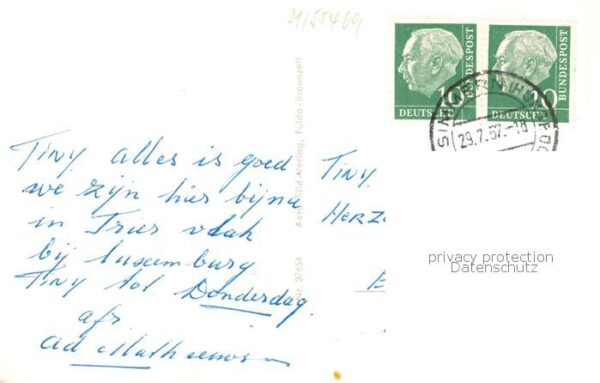 21/55469
10 DEUTSCHE BUNDESPOST
10 DEUTSCHE BUNDESPOST
29.7.57.-18
Tiny alles is goed
we zijn hier bijna
in Trier vlak
bij luxemburg
Tiny tot Donderdag.
afz.
Ad Matheeuws
Tiny
Herz
Verlag, Fulda-Bronnzell
37654
privacy protection
Datenschutz